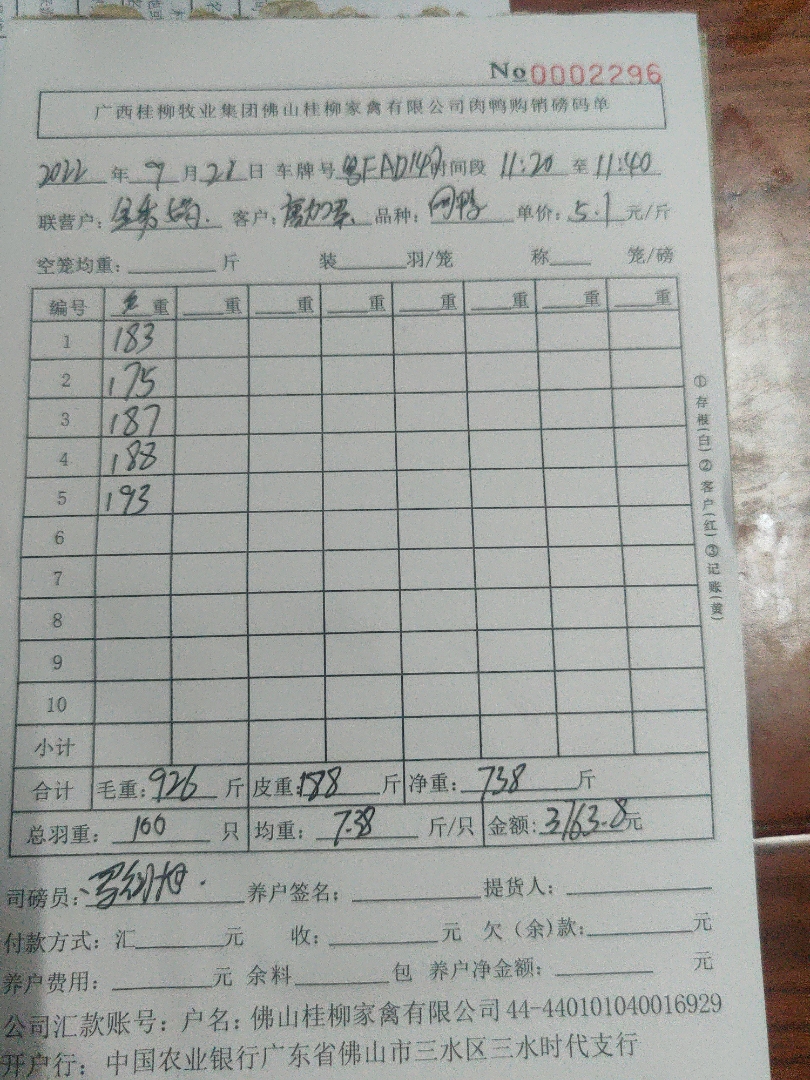 No0002296
广西桂柳牧业集团佛山桂柳家禽有限公司肉鸭购销磅码单
2022 年 9 月 21 日 车牌号 粤FAD149 时间段 11:20 至 11:40
联营户: 客户: 品种: 单价: 5.1 元/斤
空笼均重: 斤 装 羽/笼 称 笼/磅
编号 毛重 重 重 重 重 重 重 重
1 183
2 175
3 187
4 188
5 193
6
7
8
9
10
小计
合计 毛重: 926 斤 皮重: 188 斤 净重: 738 斤
总羽重: 100 只 均重: 7.38 斤/只 金额: 3763.8元
司磅员: 养户签名: 提货人:
付款方式: 汇 元 收: 元 欠(余)款: 元
养户费用: 元 余料 包 养户净金额: 元
公司汇款账号: 户名: 佛山桂柳家禽有限公司 44-440101040016929
开户行: 中国农业银行广东省佛山市三水区三水时代支行
①存根(白)②客户(红)③记账(黄)